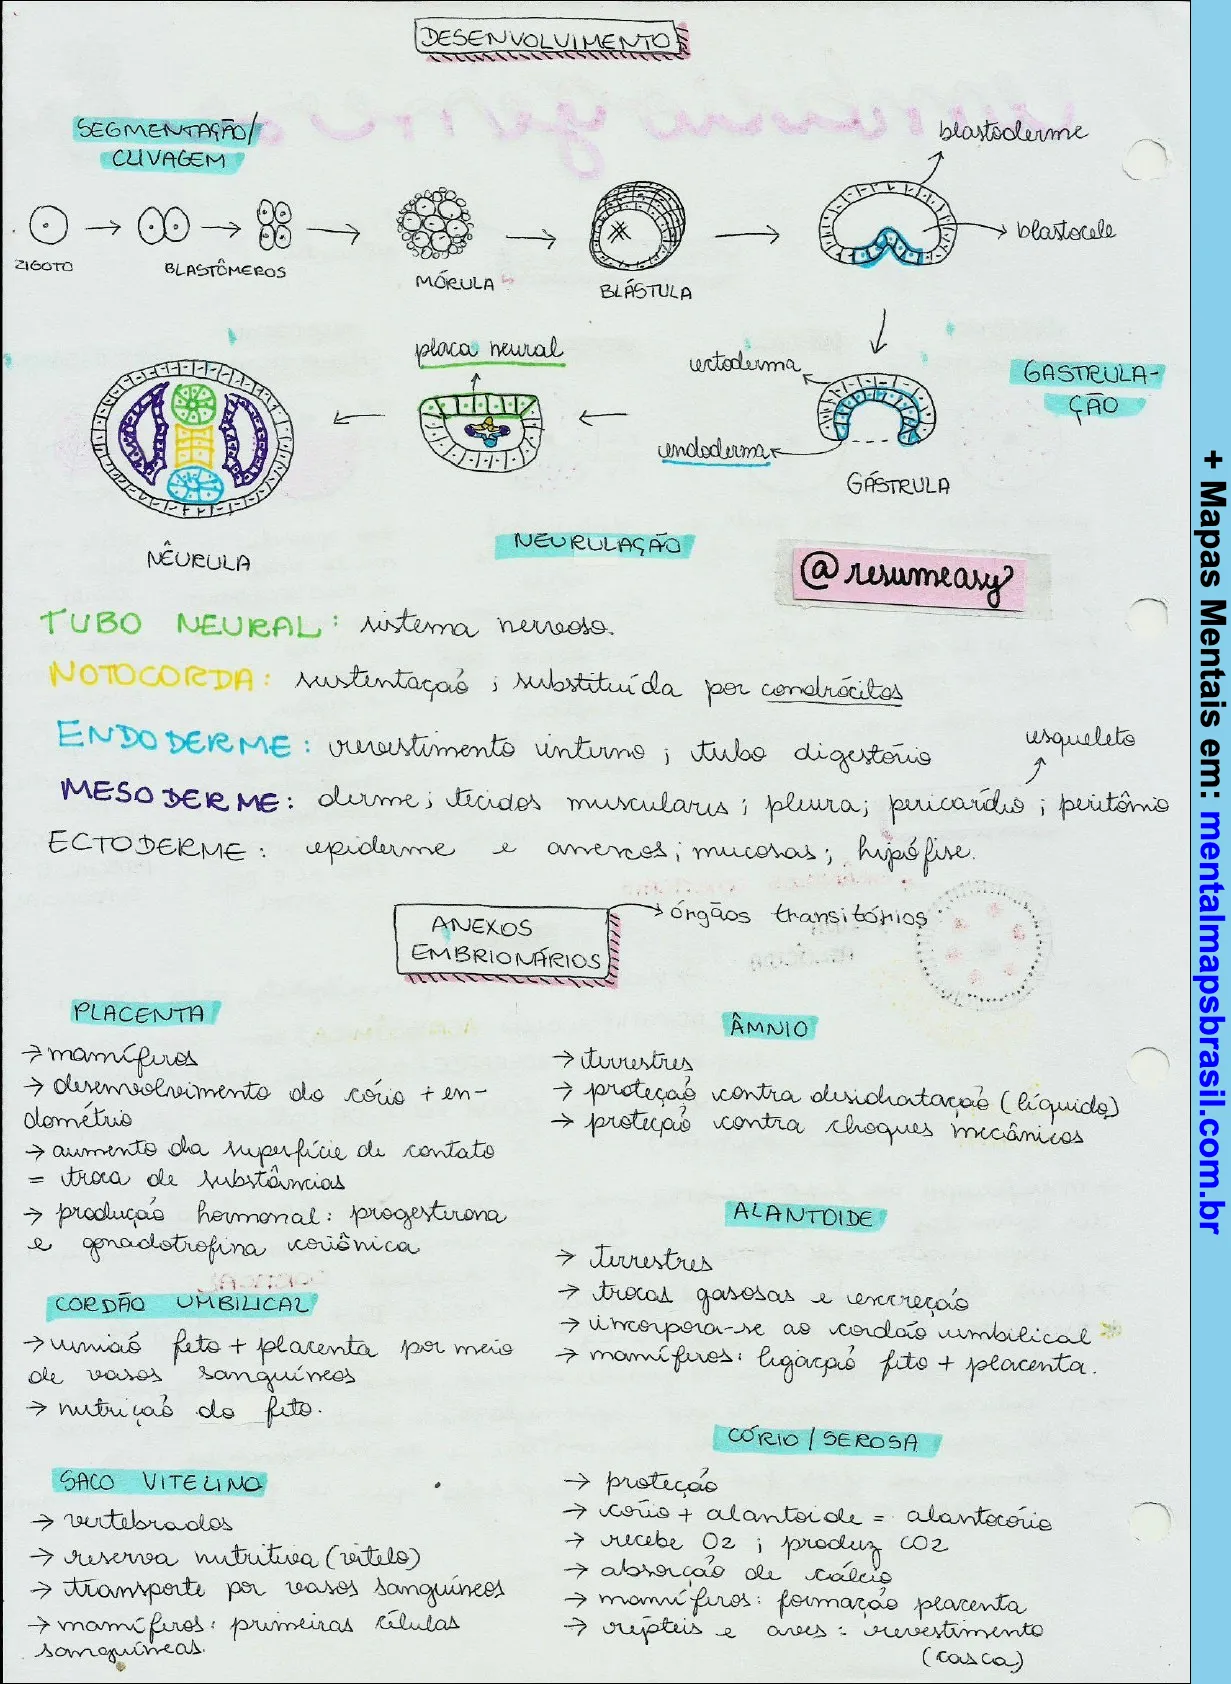 DESENVOLVIMENTO
SEGMENTAÇÃO/
CLIVAGEM
blastoderme
blastocele
ZIGOTO
BLASTÔMEROS
MÓRULA
BLÁSTULA
placa neural
ectoderma
endoderma
GASTRULA-
ÇÃO
GÁSTRULA
NÊURULA
NEURULAÇÃO
@resumeasy
TUBO NEURAL: sistema nervoso.
NOTOCORDA: sustentação; substituída por condrócitos
ENDODERME: revestimento interno; tubo digestório
esqueleto
MESODERME: derme; tecidos musculares; pleura; pericárdio; peritônio
ECTODERME: epiderme e anexos; mucosas; hipófise.
ANEXOS
EMBRIONÁRIOS
→ órgãos transitórios
PLACENTA
→ mamíferos
→ desenvolvimento do cório + en-
dométrio
→ aumento da superfície de contato
= troca de substâncias
→ produção hormonal: progesterona
e gonadotrofina coriônica
CORDÃO UMBILICAL
→ união feto + placenta por meio
de vasos sanguíneos
→ nutrição do feto.
SACO VITELINO
→ vertebrados
→ reserva nutritiva (vitelo)
→ transporte por vasos sanguíneos
→ mamíferos: primeiras células
sanguíneas.
ÂMNIO
→ terrestres
→ proteção contra desidratação (líquido)
→ proteção contra choques mecânicos
ALANTOIDE
→ terrestres
→ trocas gasosas e excreção
→ incorpora-se ao cordão umbilical *
→ mamíferos: ligação feto + placenta.
CÓRIO/SEROSA
→ proteção
→ cório + alantoide = alantocório
→ recebe O2; produz CO2
→ absorção de cálcio
→ mamíferos: formação placenta
→ répteis e aves: revestimento
(casca)
+ Mapas Mentais em: mentalmapsbrasil.com.br